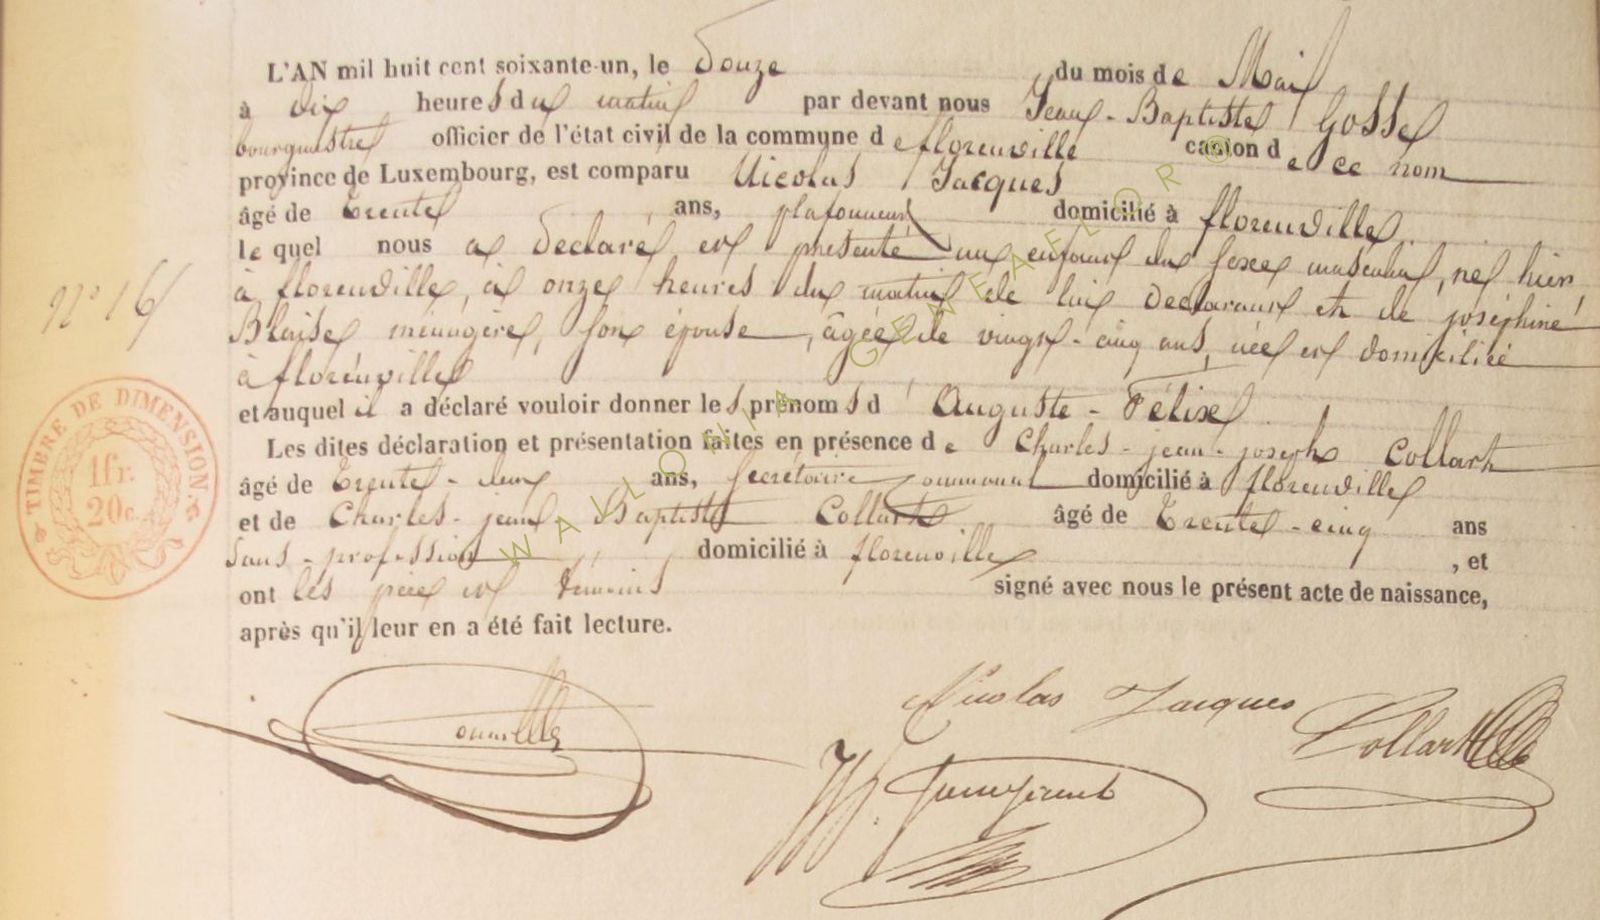 L'AN mil huit cent soixante-un, le Douze du mois de Mai
à dix heures du matin par devant nous Jean-Baptiste Gosse
bourgmestre officier de l'état civil de la commune de florenville canton de ce nom
province de Luxembourg, est comparu Nicolas Jacques
âgé de Trente ans, plafonneur domicilié à florenville
lequel nous a déclaré et présenté un enfant du sexe masculin, né hier
à florenville, à onze heures du matin de lui déclarant et de joséphine
Blaise ménagère, son épouse, âgée de vingt-cinq ans, née et domiciliée
à florenville
et auquel il a déclaré vouloir donner les prénoms d' Auguste-Félix
Les dites déclaration et présentation faites en présence de Charles-jean-joseph Collart
âgé de Trente-deux ans, Secrétaire Communal domicilié à florenville
et de Charles-jean Baptiste Collart âgé de Trente-cinq ans
Sans-profession domicilié à florenville, et
ont les père et témoins signé avec nous le présent acte de naissance,
après qu'il leur en a été fait lecture.
n° 16
TIMBRE DE DIMENSION.
1 fr.
20 c.
WALLONIA GENEAFLOR ©
Nicolas Jacques
Collart